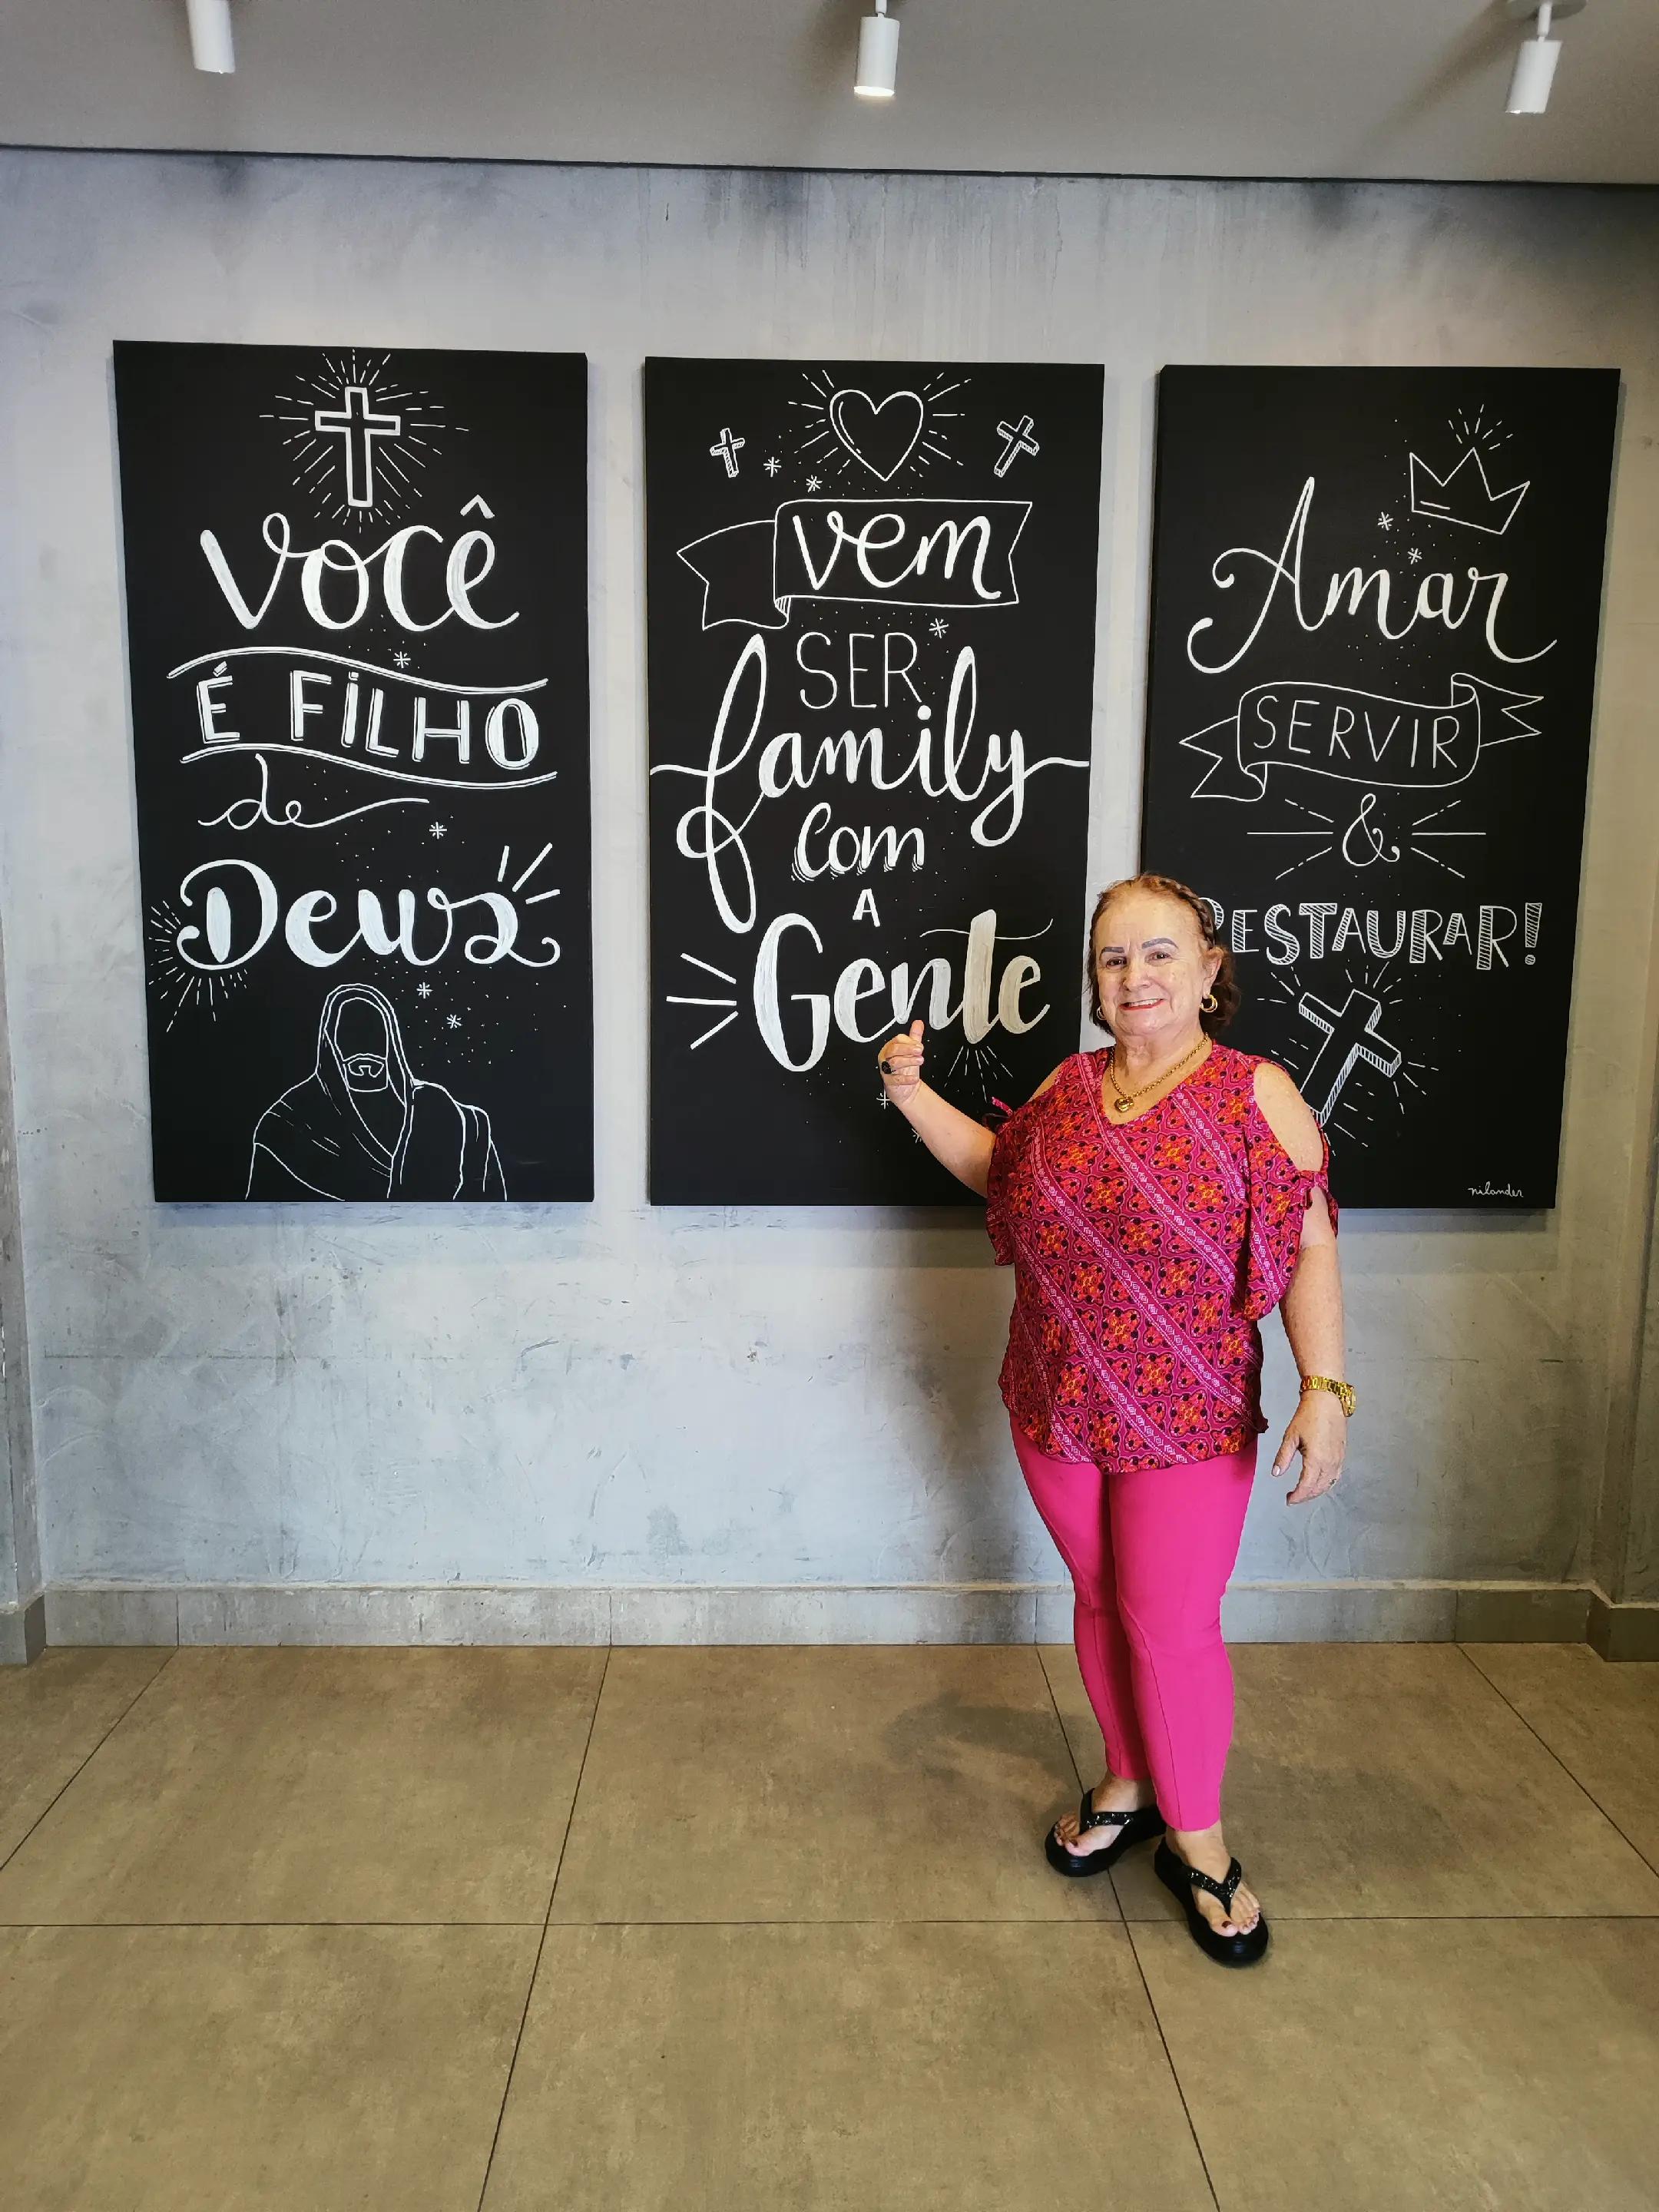 Você
É FILHO
de
Deus
vem
SER
family
com
A
Gente
Amar
SERVIR
&
RESTAURAR!
nilander